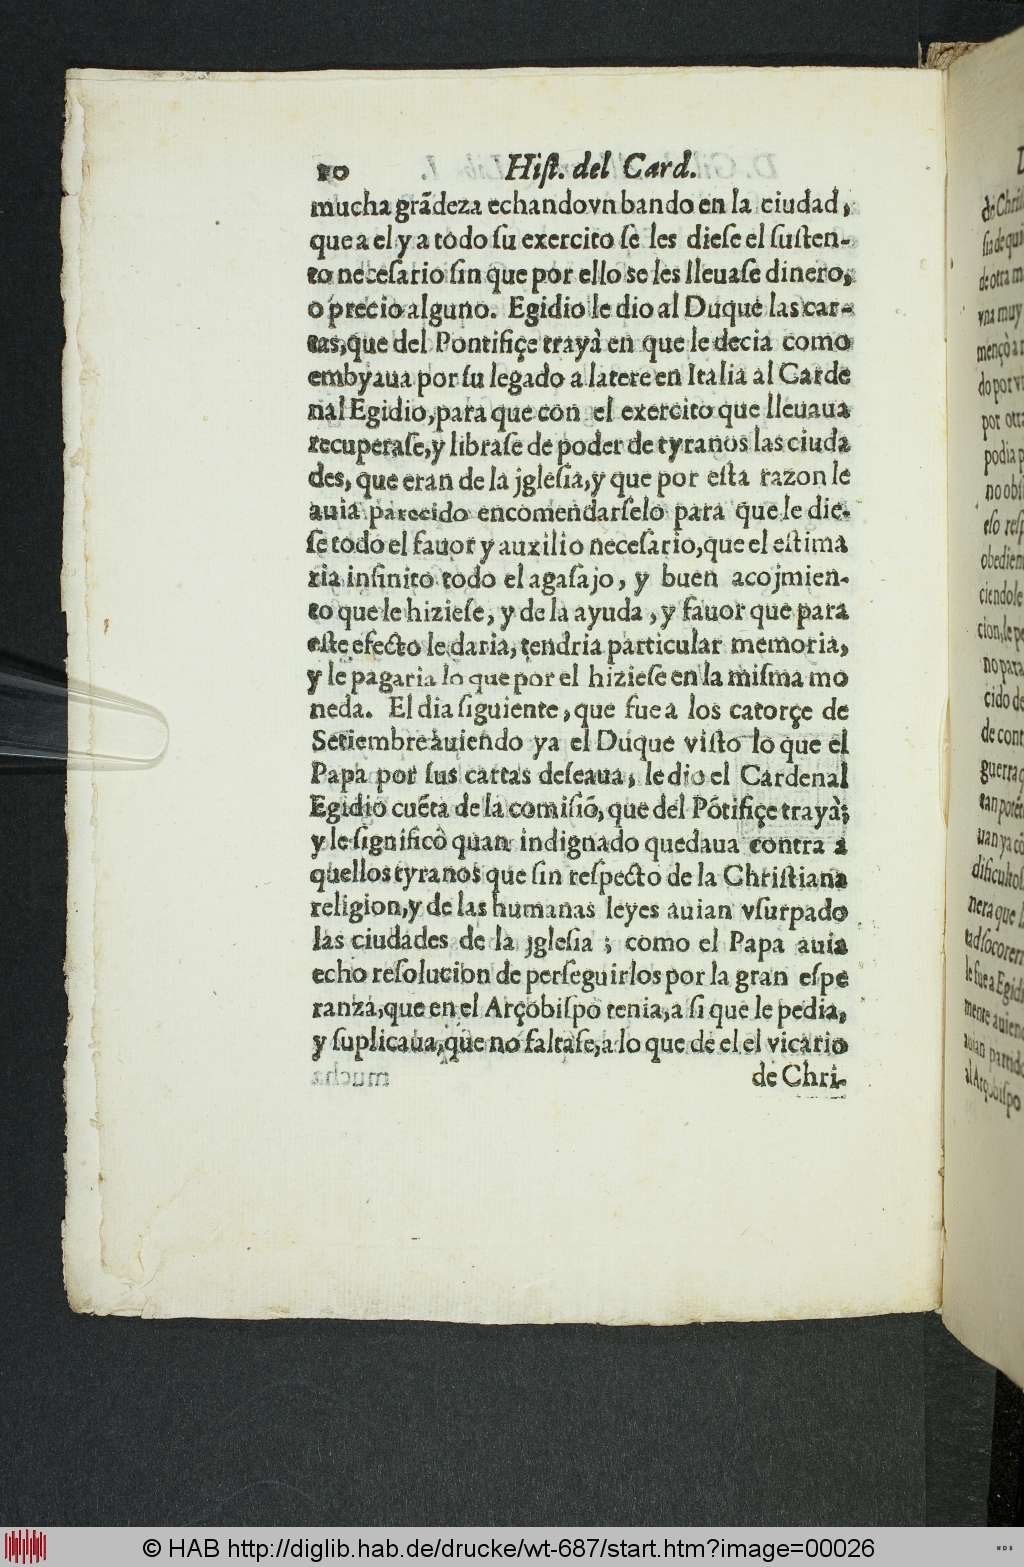 10 Hiſt. del Card.
mucha grãdeza echando vn bando en la ciudad,
que a el y a todo ſu exercito ſe les dieſe el ſuſten-
to neceſario ſin que por ello ſe les lleuaſe dinero,
o precio alguno. Egidio le dio al Duque las car-
tas, que del Pontifiçe trayà en que le decia como
embyaua por ſu legado a latere en Italia al Carde
nal Egidio, para que con el exercito que lleuaua
recuperaſe, y libraſe de poder de tyranos las ciuda
des, que eran de la jgleſia, y que por eſta razon le
auia parecido encomendarſelo para que le die-
ſe todo el fauor y auxilio neceſario, que el eſtima
ria infinito todo el agaſajo, y buen acojmien-
to que le hizieſe, y de la ayuda, y fauor que para
eſte efecto le daria, tendria particular memoria,
y le pagaria lo que por el hizieſe en la miſma mo
neda. El dia ſiguiente, que fue a los catorçe de
Setiembre àuiendo ya el Duque viſto lo que el
Papa por ſus cartas deſeaua, le dio el Cardenal
Egidio cuẽta de la comiſiõ, que del Põtifiçe trayà;
y le ſignificò quan indignado quedaua contra a
quellos tyranos que ſin reſpecto de la Chriſtiana
religion, y de las humanas leyes auian vſurpado
las ciudades de la jgleſia; como el Papa auia
echo reſolucion de perſeguirlos por la gran eſpe
ranza, que en el Arçobiſpo tenia, a ſi que le pedia,
y ſuplicaua, que no faltaſe, a lo que de el el vicario
de Chri-
de Chriſ
ſia de qui
de otra m
vna muy
mençò a
do por vi
por otra
podia p
no obſ
eſo reſp
obedien
ciendole
cion, le pe
no para
cido de
de cont
guerra
tan potẽ
uan ya cõ
dificultoſ
nera que
tad ſocorer
le fue a Egid
mente auien
auian partido
al Arçobiſpo
© HAB http://diglib.hab.de/drucke/wt-687/start.htm?image=00026